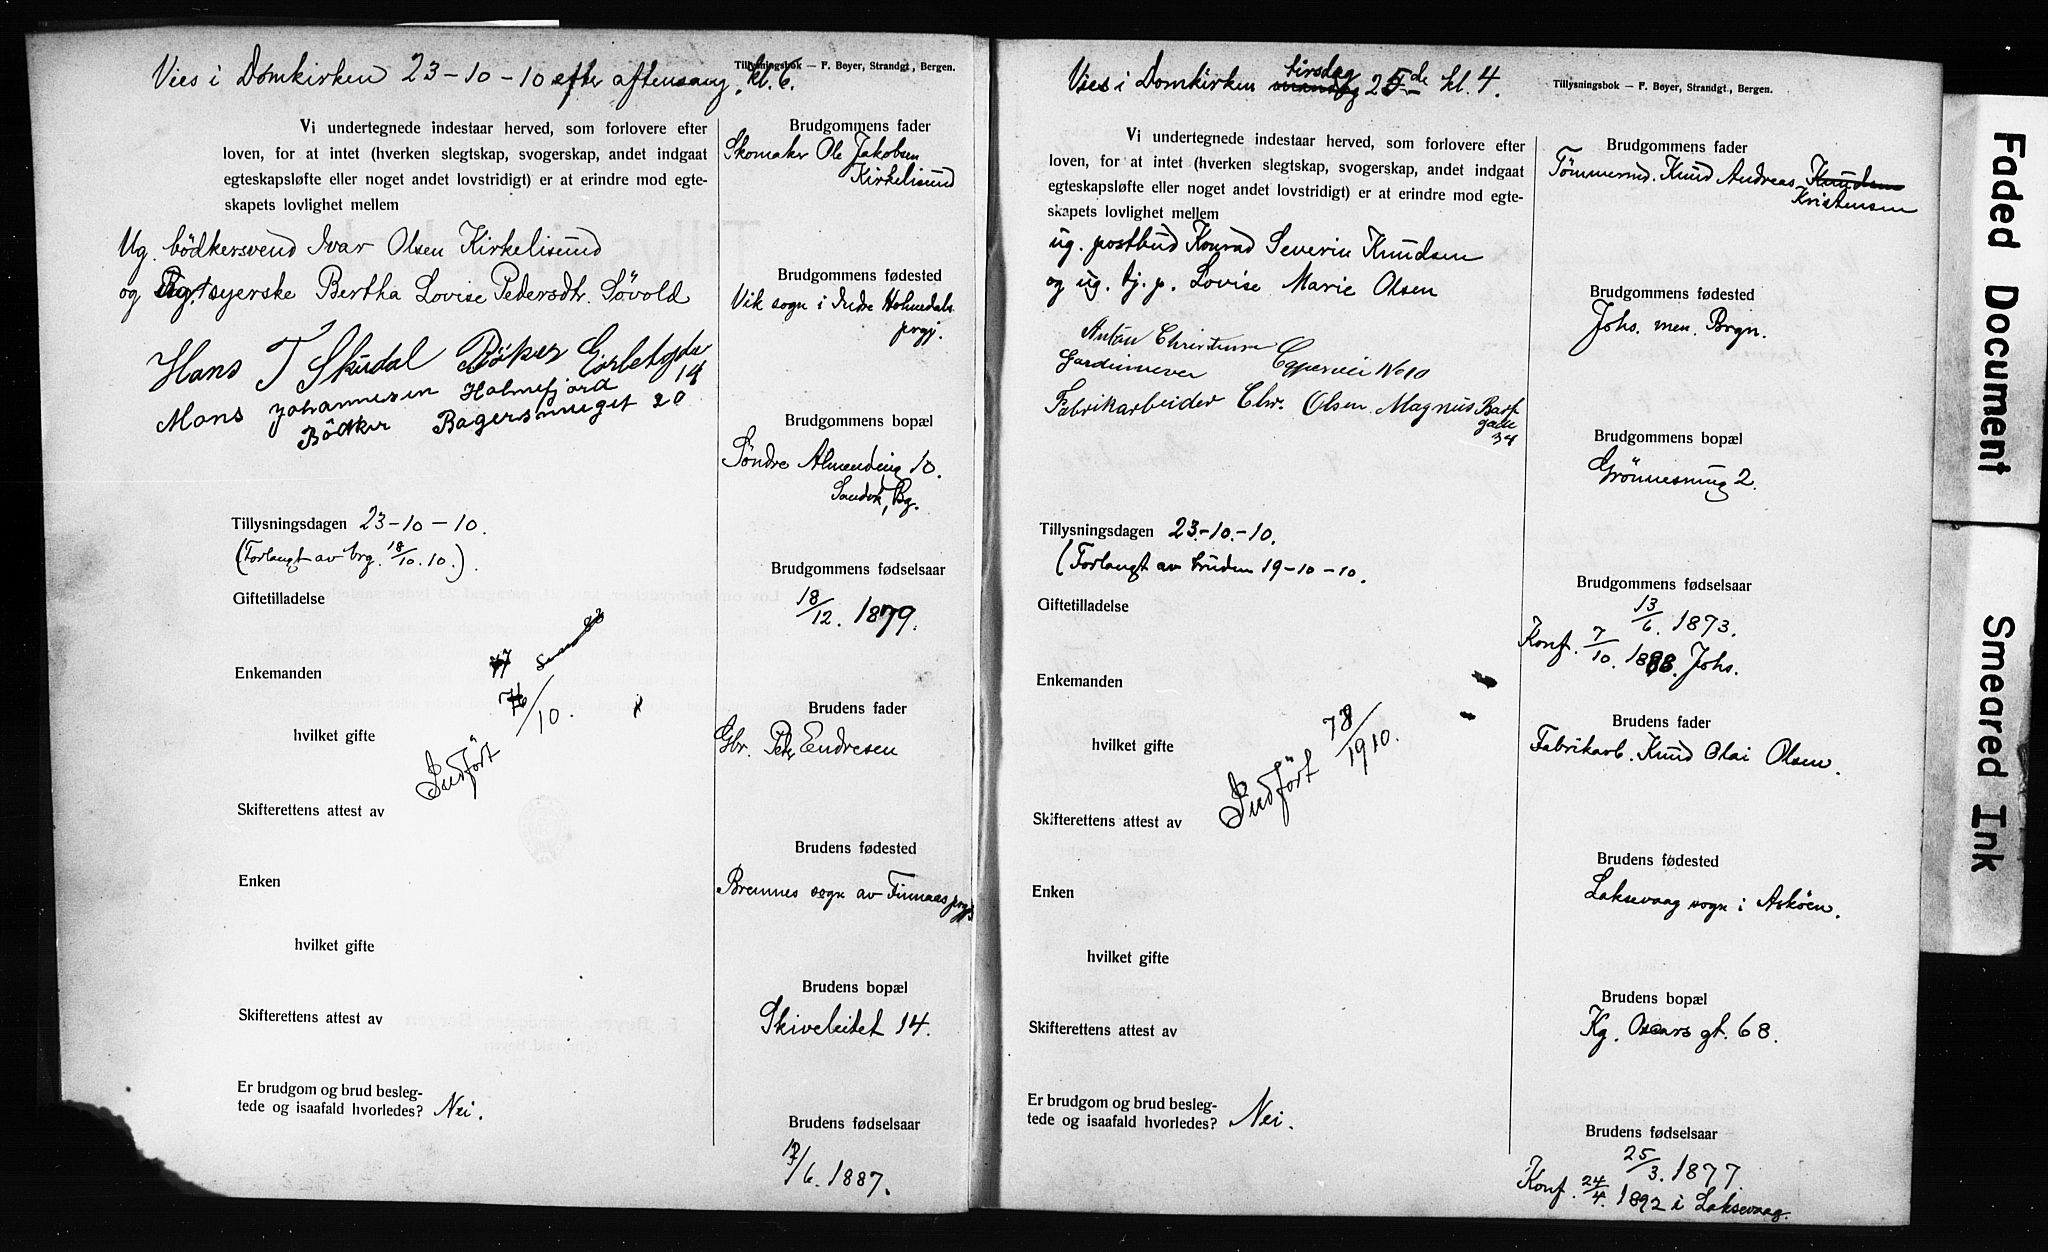 Vies i Domkirken 23-10-10 efter aftensang, kl. 6.
Tillysningsbok — F. Beyer, Strandgt., Bergen.
Vi undertegnede indestaar herved, som forlovere efter
loven, for at intet (hverken slegtskap, svogerskap, andet indgaat
egteskapsløfte eller noget andet lovstridigt) er at erindre mod egte-
skapets lovlighet mellem
Ug. bödkersvend Ivar Olsen Kirkelisund
og syerske Bertha Lovise Pedersdtr. Sövold
Hans T Skudal Böker
14
Mons Johannesen Holmefjord
Bödker Bagersmuget 20
Tillysningsdagen 23-10-10.
(Forlangt av brg. 18/10.10.)
Giftetilladelse
Enkemanden
hvilket gifte
Indfört /10.
Skifterettens attest av
Enken
hvilket gifte
Skifterettens attest av
Er brudgom og brud besleg-
tede og isaafald hvorledes? Nei.
Brudgommens fader
Skomaker Ole Jakobsen
Kirkelisund
Brudgommens fødested
Vik sogn i Indre Holmedals
prgj.
Brudgommens bopæl
Söndre Almending 10.
Sandvk, Bg.
Brudgommens fødselsaar
18/12. 1879.
Brudens fader
Gbr. Peter Endresen
Brudens fødested
Bremnes sogn av Finnaas prgj.
Brudens bopæl
Skiveleitet 14.
Brudens fødselsaar
/6. 1887.
Vies i Domkirken tirsdag 25de kl. 4.
Tillysningsbok — F. Beyer, Strandgt., Bergen.
Vi undertegnede indestaar herved, som forlovere efter
loven, for at intet (hverken slegtskap, svogerskap, andet indgaat
egteskapsløfte eller noget andet lovstridigt) er at erindre mod egte-
skapets lovlighet mellem
ug. postbud Konrad Severin Knudsen
og ug. tj. p. Lovise Marie Olsen
Anton Christensen
No 10
Fabrikarbeider Chr. Olsen Magnus Barf
gade
34
Tillysningsdagen 23.-10.-10.
(Forlangt av bruden 19-10-10.
Giftetilladelse
Enkemanden
hvilket gifte
Indfört 78/1910.
Skifterettens attest av
Enken
hvilket gifte
Skifterettens attest av
Er brudgom og brud besleg-
tede og isaafald hvorledes? Nei.
Brudgommens fader
Tömmermd. Knud Andreas Knudsen
Kristensen
Brudgommens fødested
Johs. men. Brgn.
Brudgommens bopæl
Grönnesmug 2.
Brudgommens fødselsaar
13/6. 1873.
Konf. 7/10. 1888. Johs.
Brudens fader
Fabrikarb. Knud Olai Olsen.
Brudens fødested
Laksevaag sogn i Asköen.
Brudens bopæl
Kg. Oscars gt. 68.
Brudens fødselsaar
25/3. 1877.
Konf. 24/4. 1892 i Laksevaag.
Faded Document
Smeared Ink